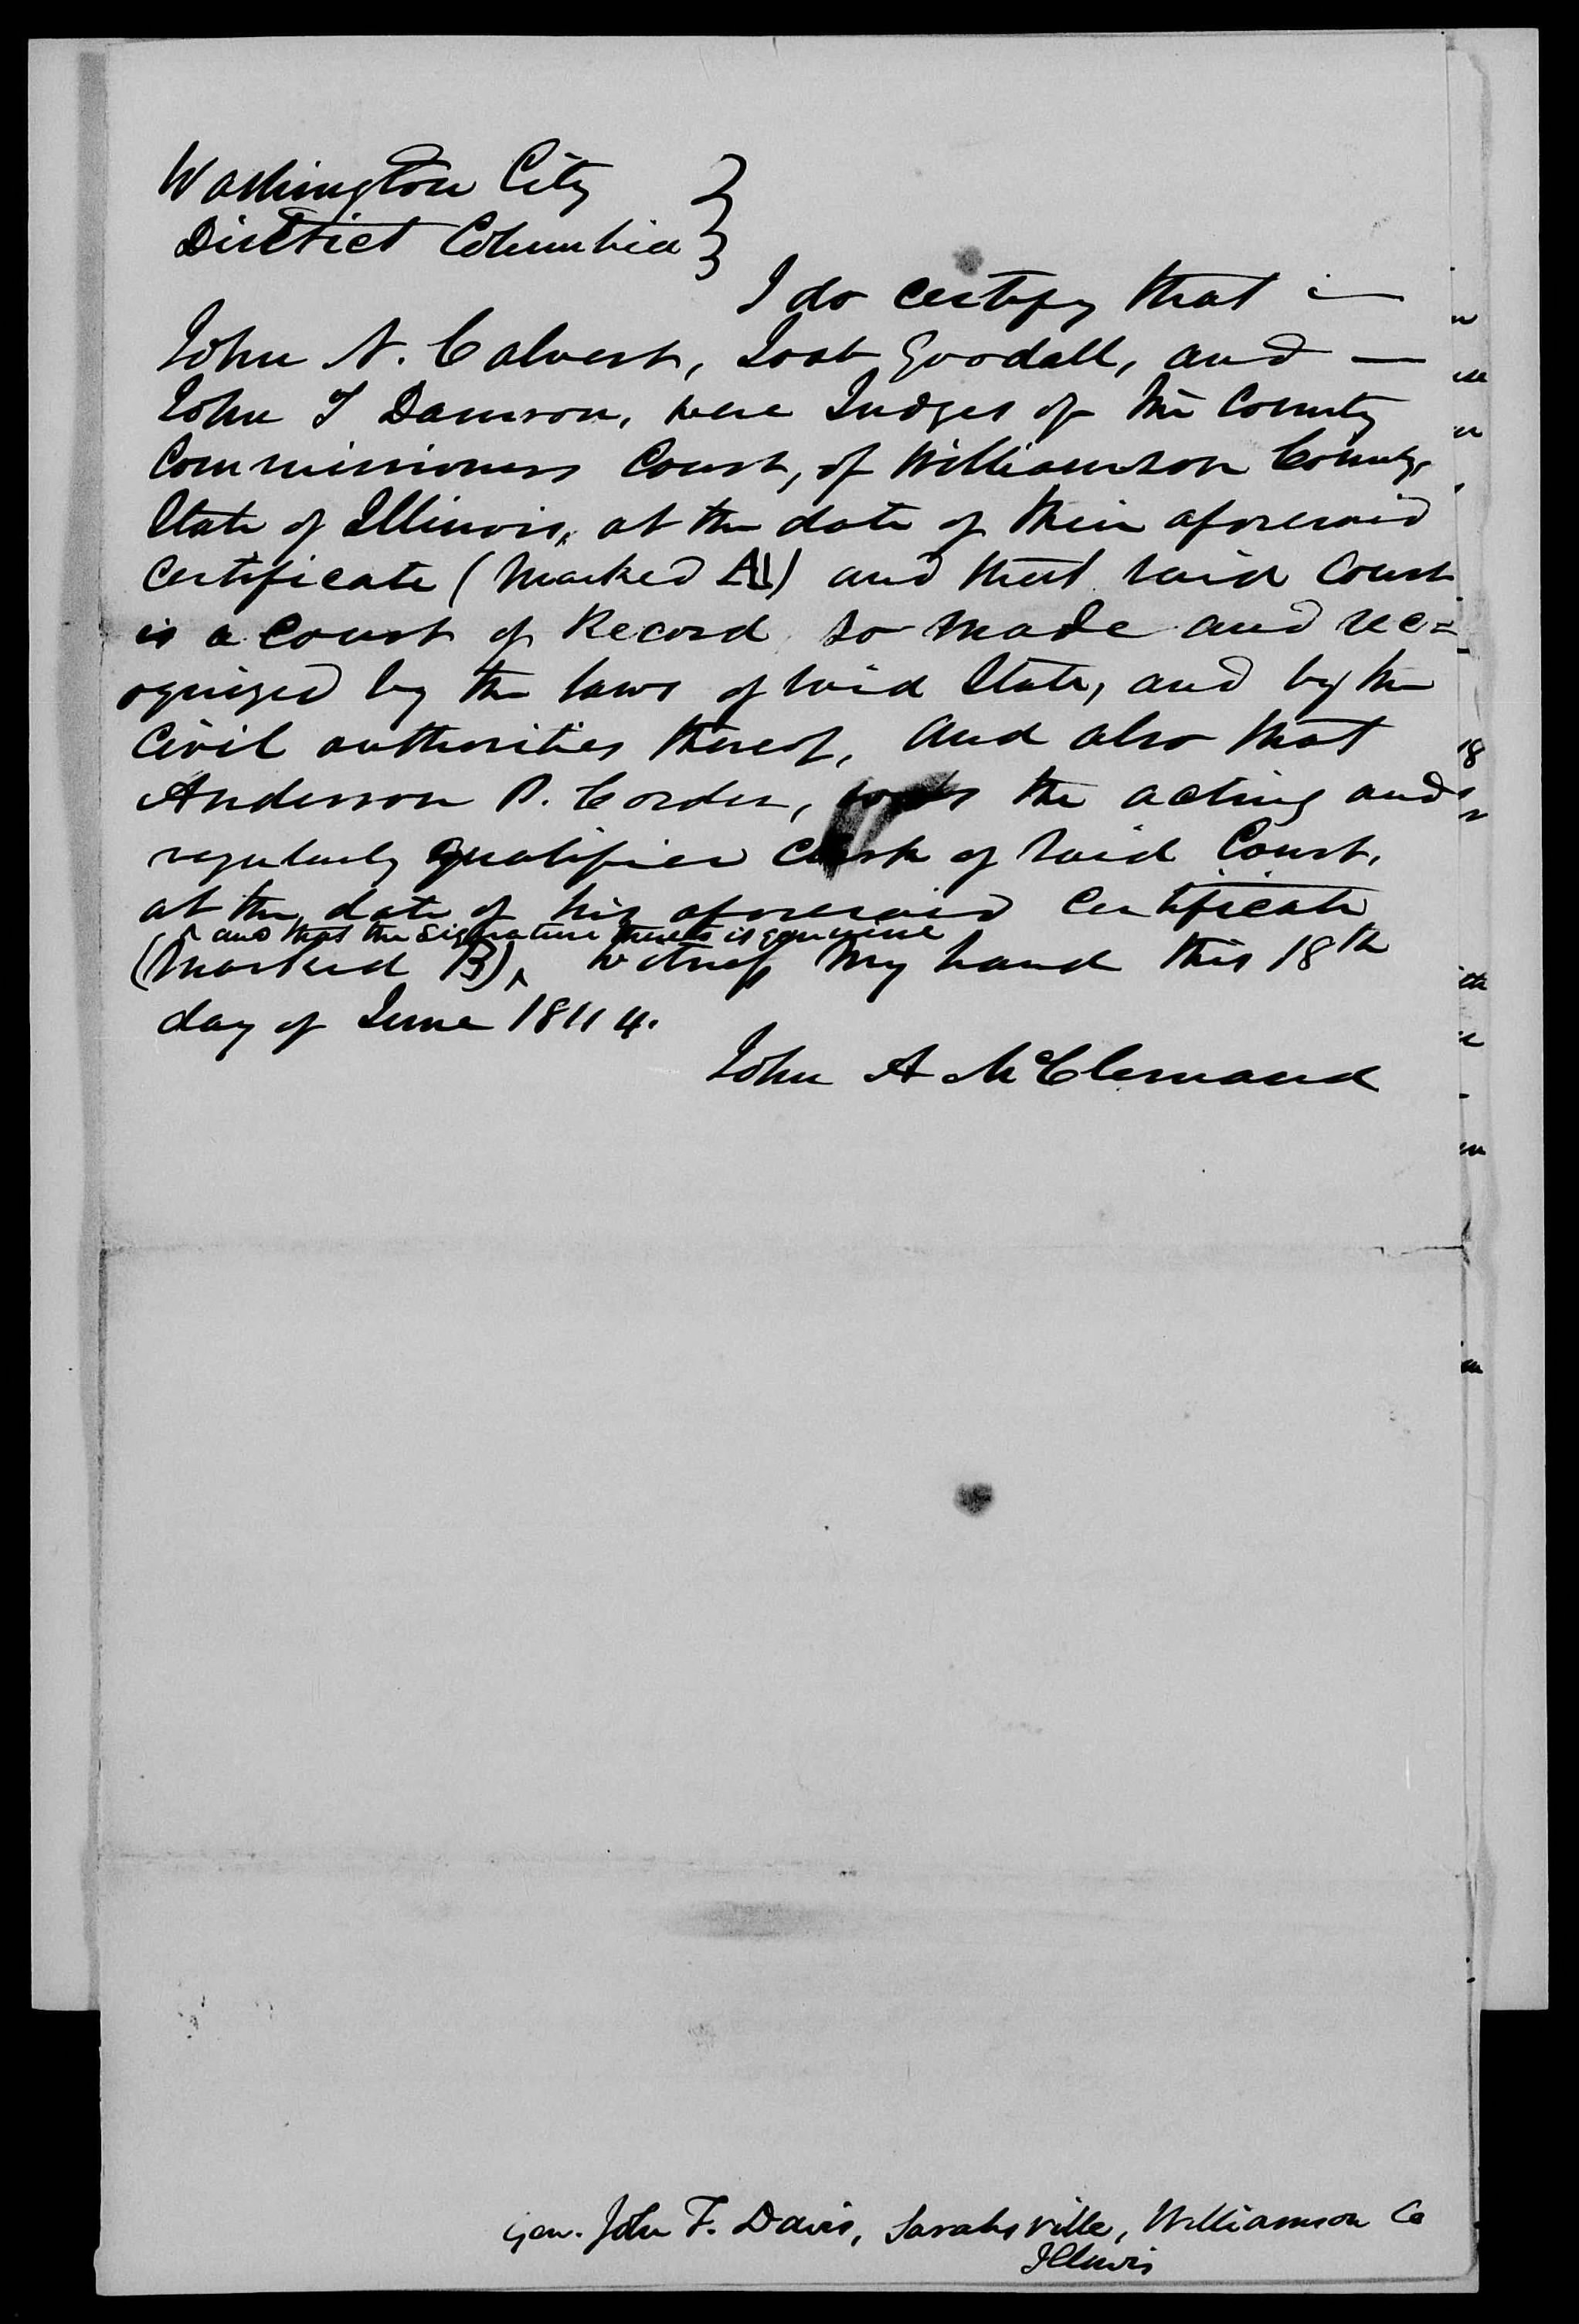 Washington City
District Columbia
I do certify that —
John N. Calvert, Joab Goodall, and —
John T Damron, were Judges of the County
Commissioners Court, of Williamson County,
State of Illinois, at the date of their aforesaid
Certificate (marked A) and that said Court
is a Court of Record so made and rec=
ognized by the laws of said State, and by the
Civil authorities thereof, and also that
Anderson P. Corder, was the acting and
regularly qualified Clerk of said Court,
at the date of his aforesaid Certificate
and that the signature thereto is genuine
(marked B), witness my hand this 18th
day of June 1844.
John A McClernand
18
Gen. John F. Davis, Sarahsville, Williamson Co
Illinois